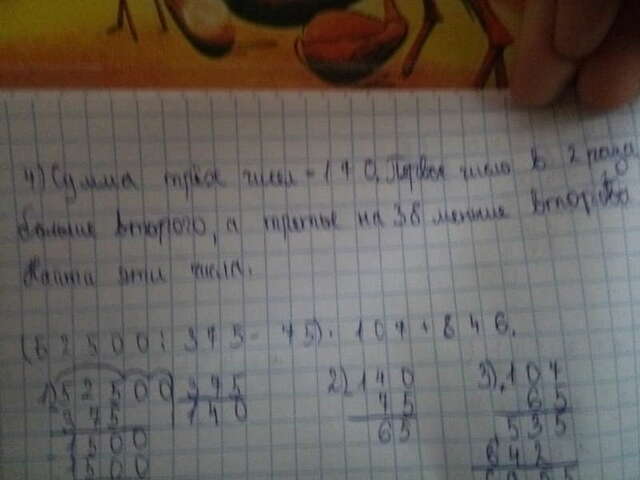 4) Сумма трёх чисел - 170. Первое число в 2 раза
больше второго, а третье на 38 меньше второго
Найти эти числа.
(52500:375-75)·107+846.
1) 52500 375 2) 140 3) 107
375 140 75 65
1500 65 535
1500 642
6955